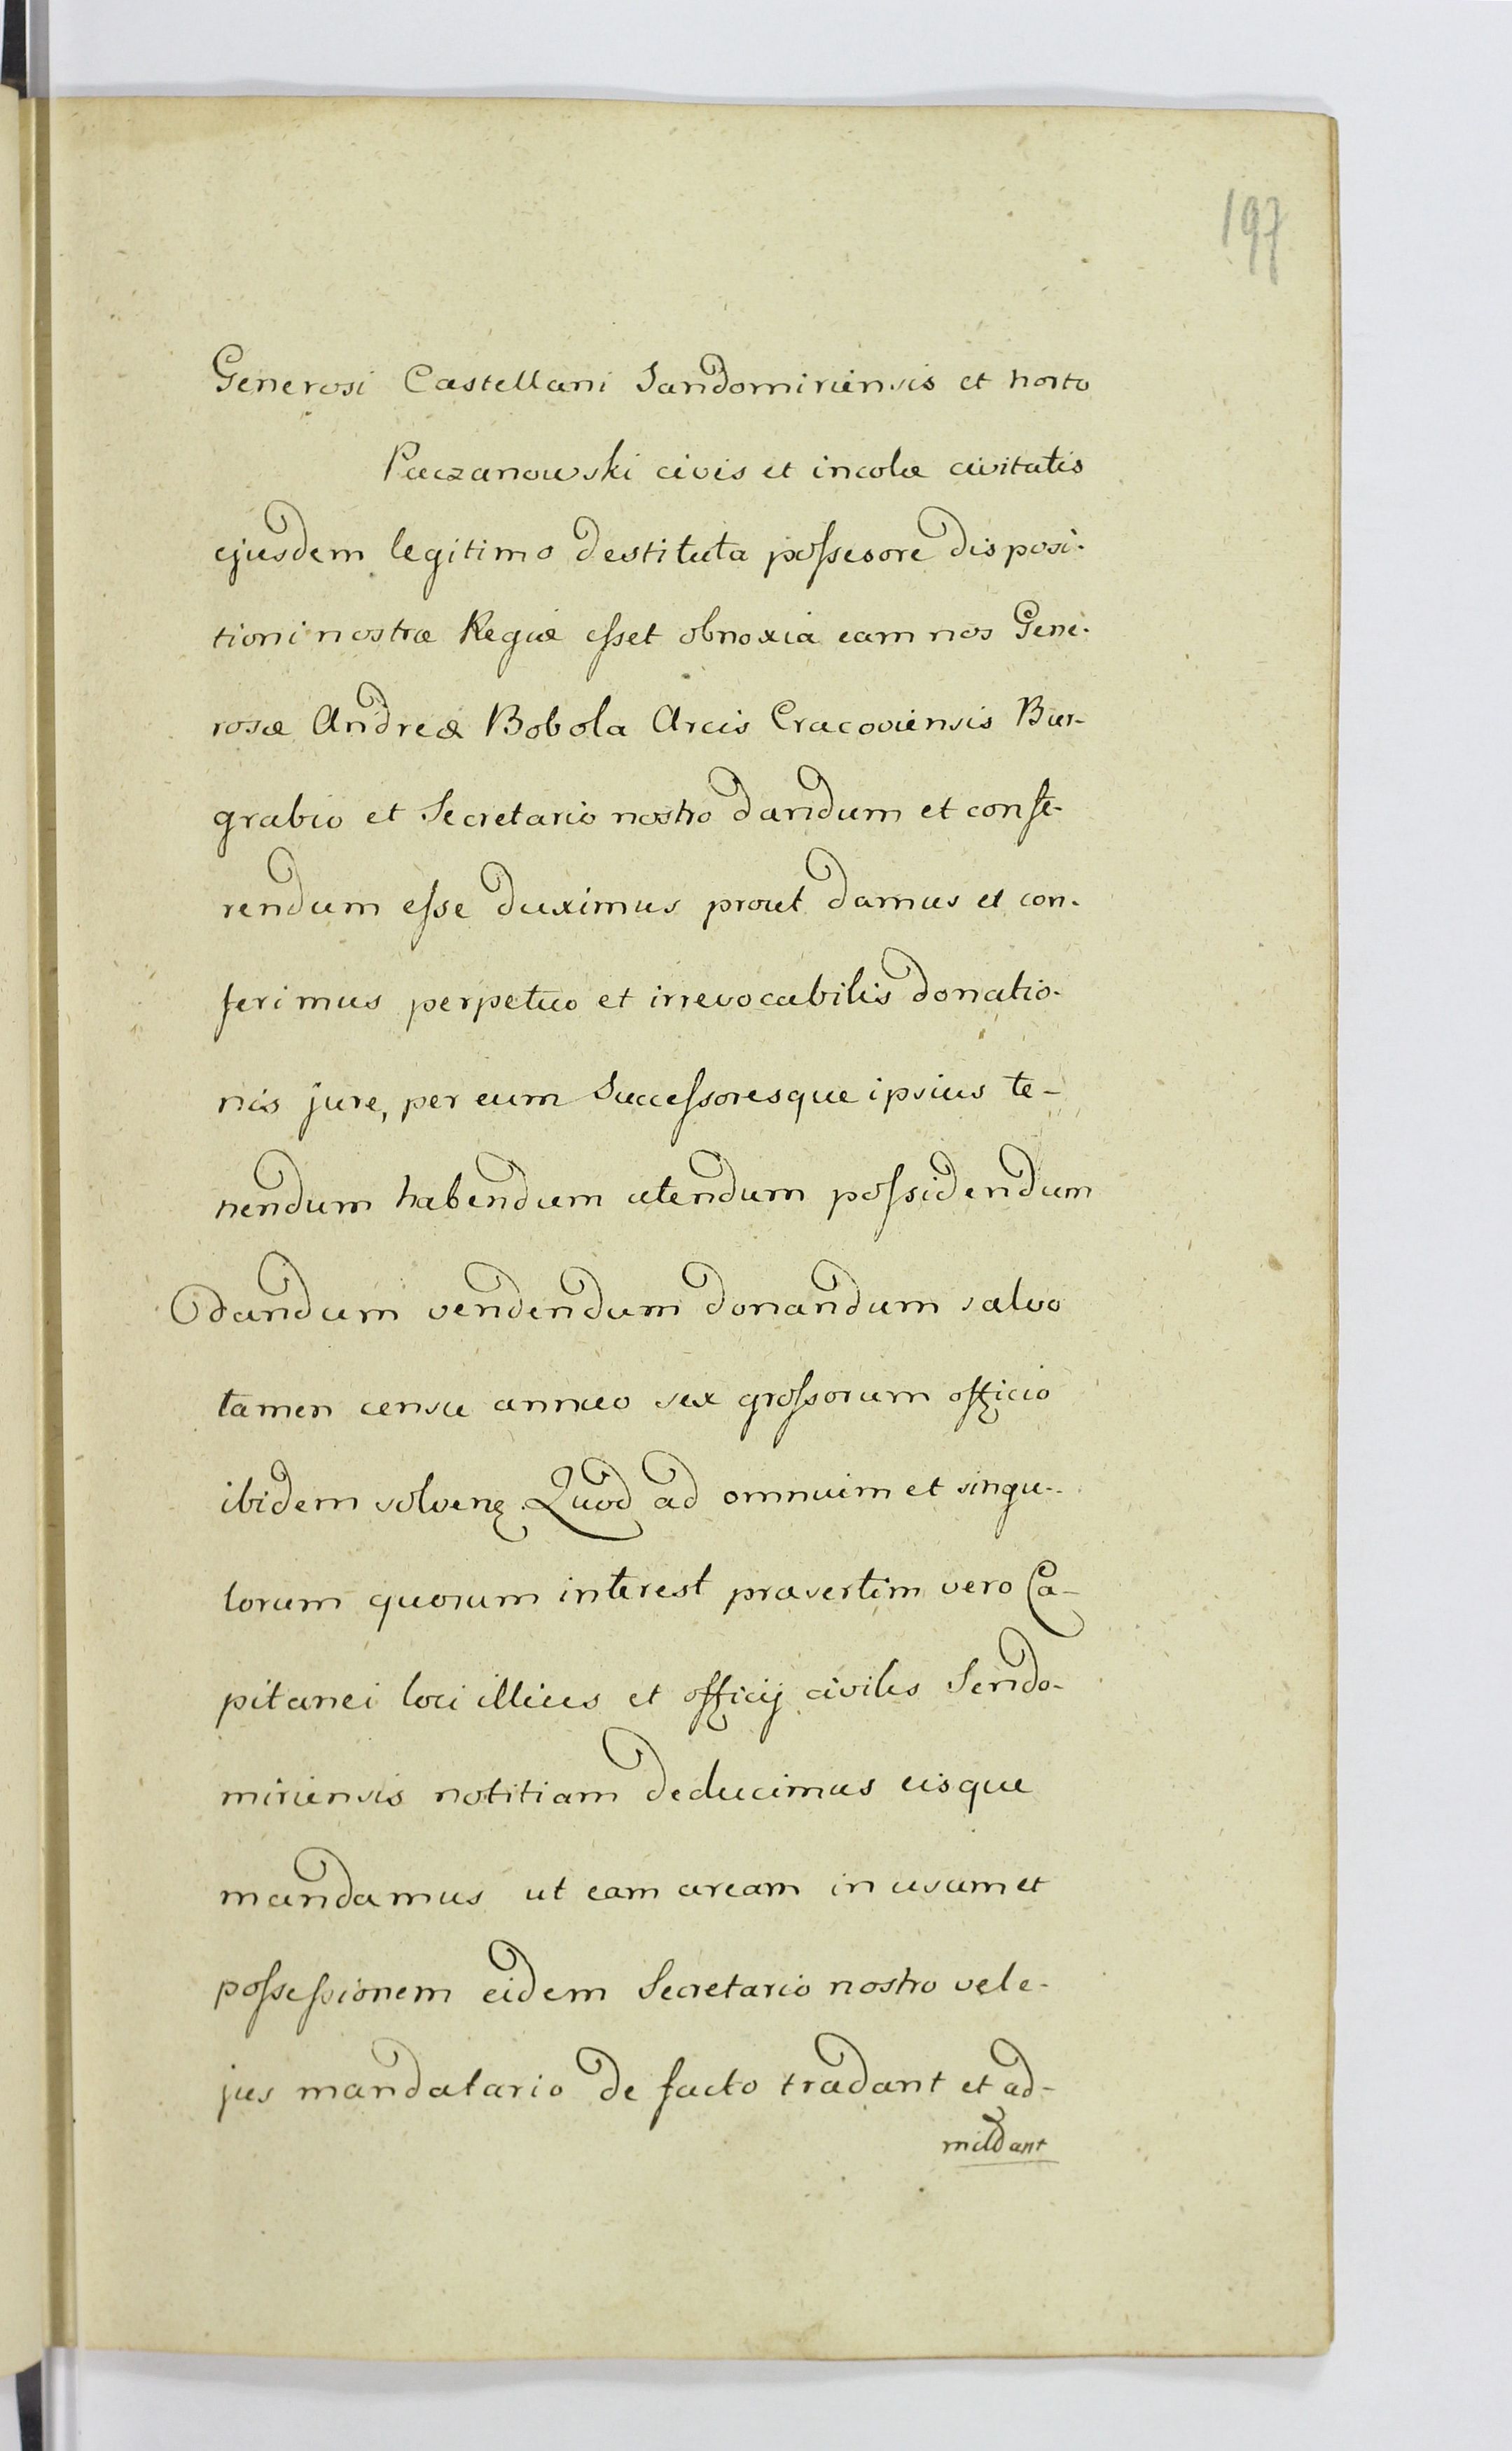 197
Generosi Castellani Sandomiriensis et horto
Paczanowski civis et incolæ civitatis
ejusdem legitimo destituta poſsesore disposi-
tioni nostræ Regiæ eſset obnoxia eam nos Gene-
rosæ Andreæ Bobola Arcis Cracoviensis Bur-
grabio et Secretario nostro dandum et confe-
rendum eſse duximus prout damus et con-
ferimus perpetuo et irrevocabilis donatio-
nis jure, per eum Succeſsoresque ipsius te-
nendum habendum utendum poſsidendum
dandum vendendum donandum salvo
tamen censu annuo sex groſsorum officio
ibidem solven. Quod ad omnium et singu-
lorum quorum interest præsertim vero Ca-
pitanei loci illius et officij civilis Sendo-
miriensis notitiam deducimus eisque
mandamus ut eam aream in usum et
poſseſsionem eidem Secretario nostro vele-
jus mandatario de facto tradant et ad-
mittant